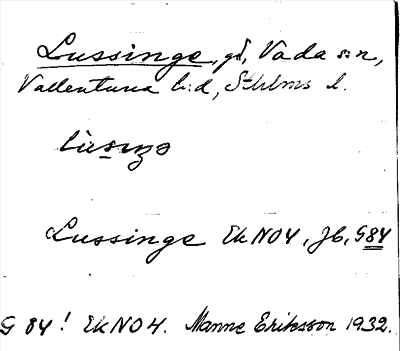 Lussinge, gd, Vada s:n,
Vallentuna h:d, Sthlms l.
Lussinge Ek NO4, Jb, G84
G 84! Ek NO4. Manne Eriksson 1932.